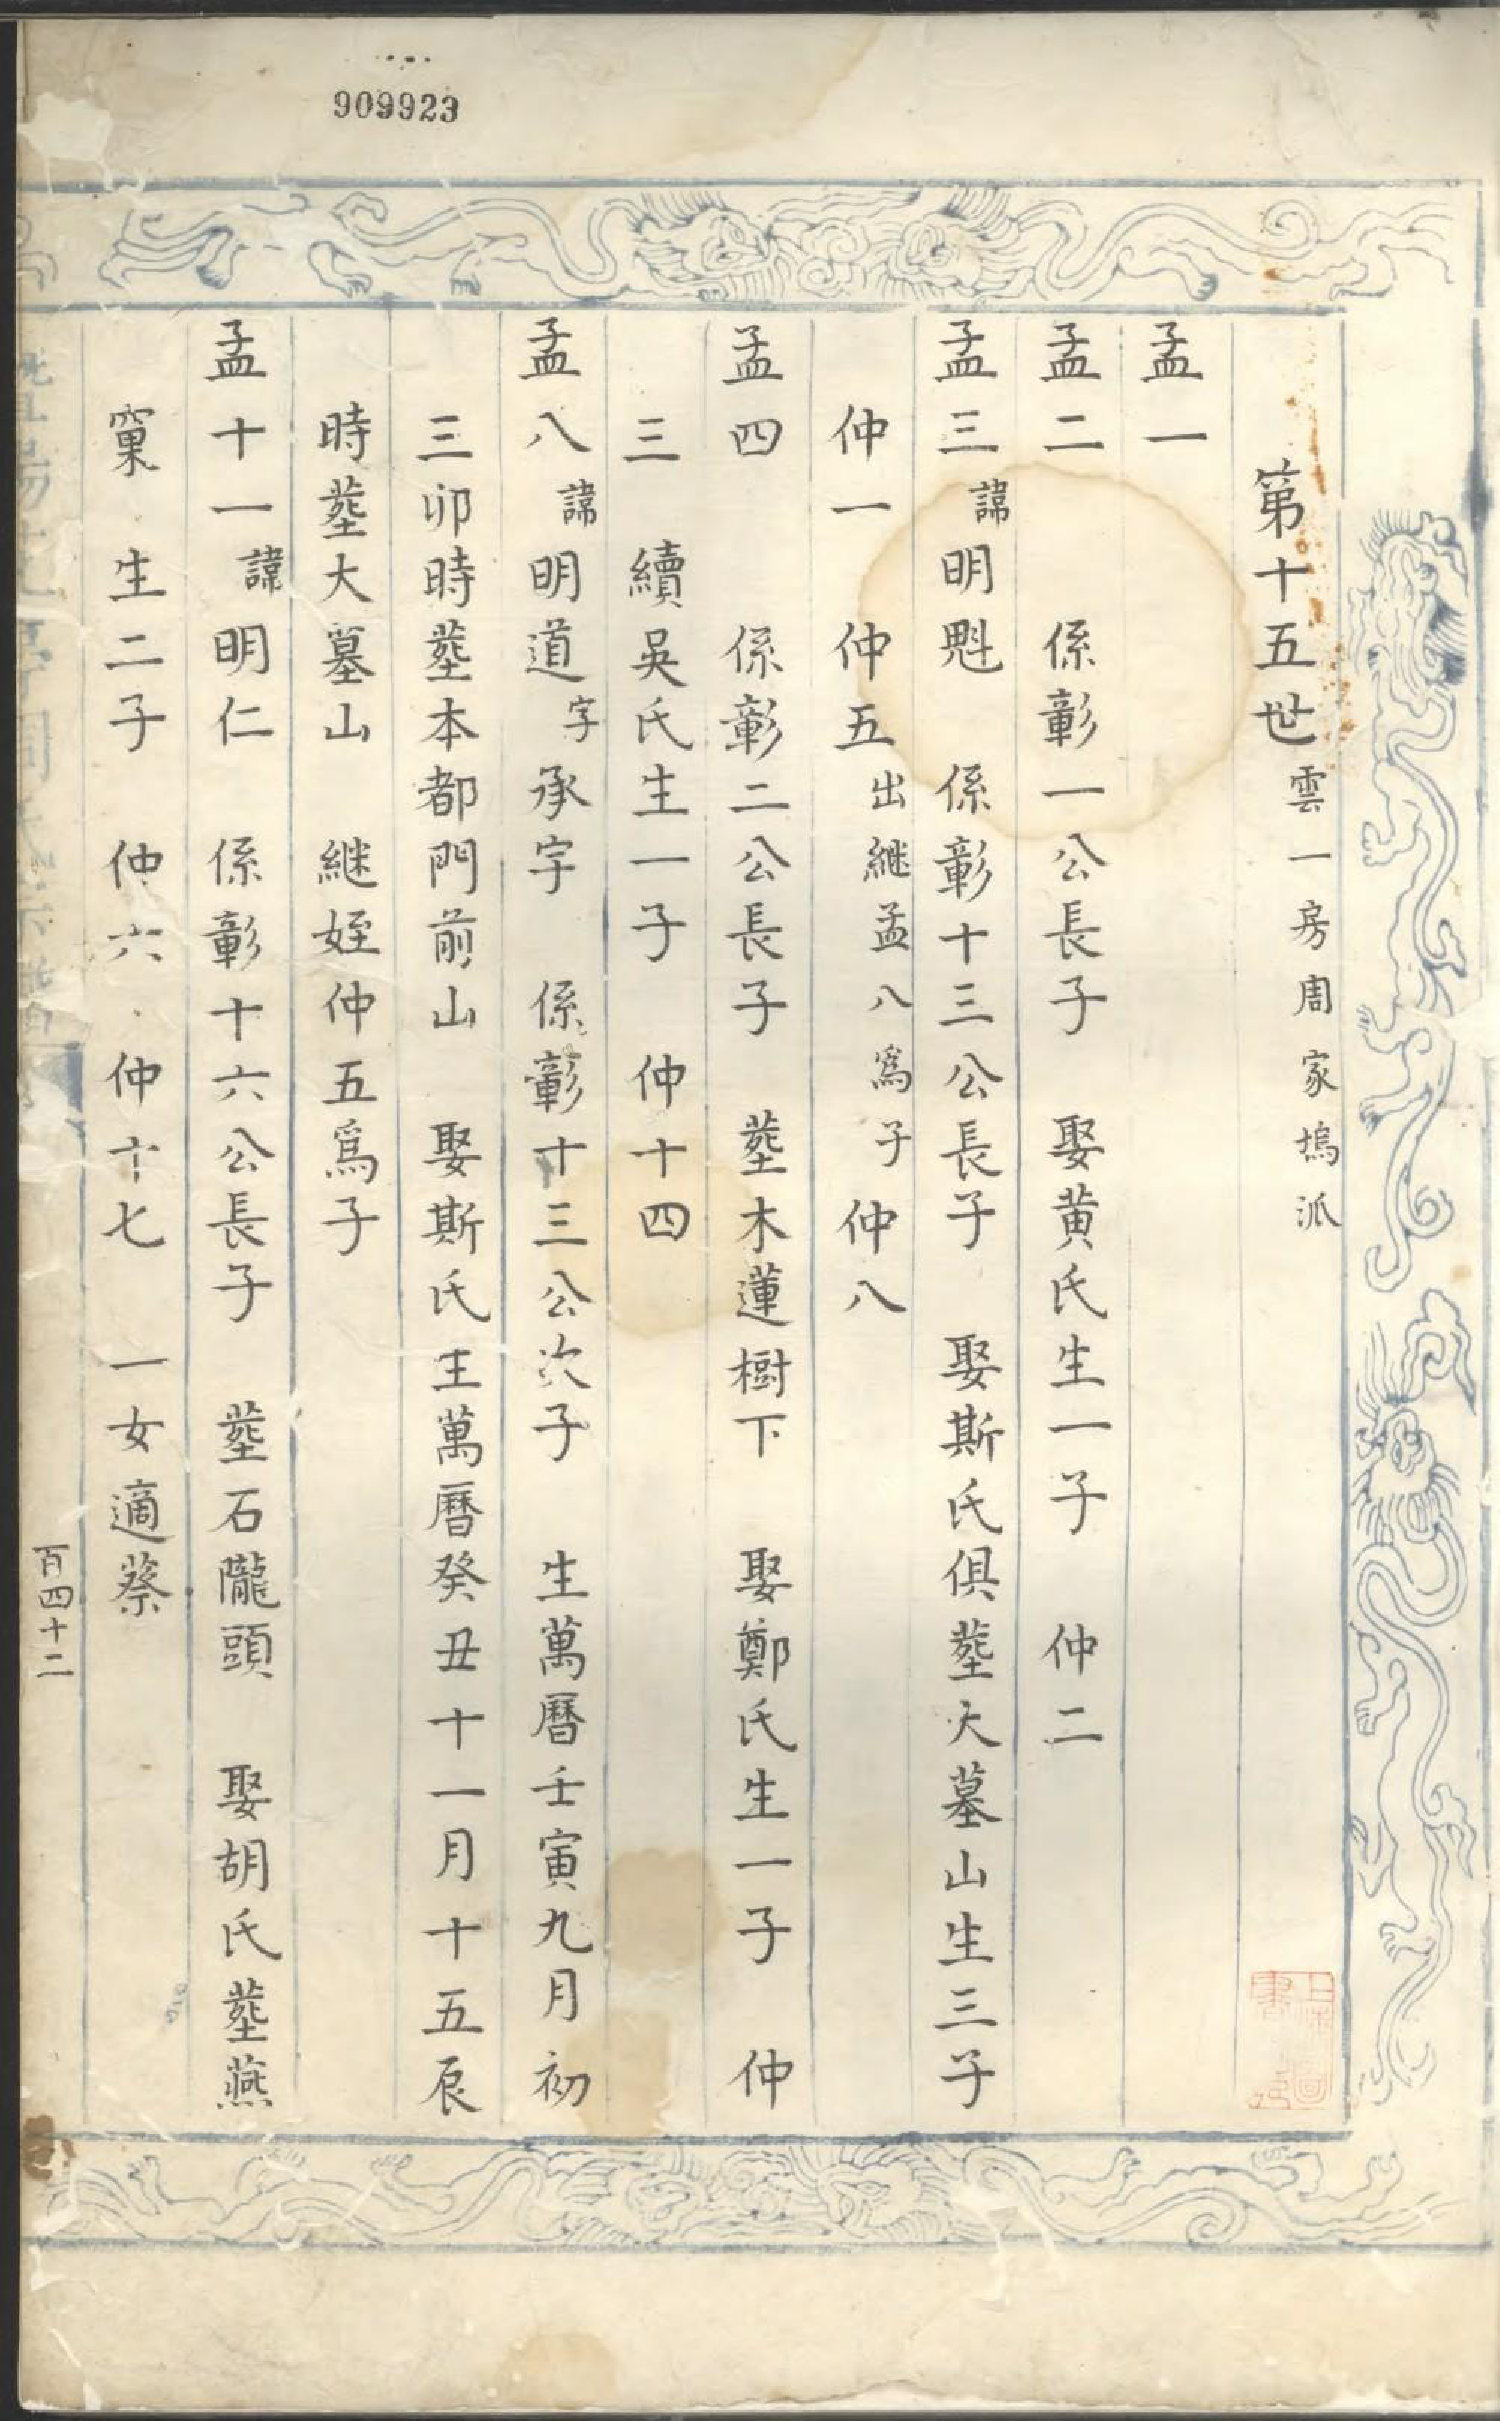 909923
第十五世雲一房周家塢派
孟一
孟二 係彰一公長子 娶黄氏生一子 仲二
孟三諱明魁 係彰十三公長子 娶斯氏俱塟大墓山生三子
仲一 仲五出継孟八爲子 仲八
孟四 係彰二公長子 塟木蓮樹下 娶鄭氏生一子 仲
三 續吳氏生一子 仲十四
孟八諱明道字承宇 係彰十三公次子 生萬曆壬寅九月初
三卯時塟本都門前山 娶斯氏生萬曆癸丑十一月十五辰
時塟大墓山 継姪仲五爲子
孟十一諱明仁 係彰十六公長子 塟石隴頭 娶胡氏塟燕
窠 生二子 仲六 仲十七 一女適蔡
百四十二